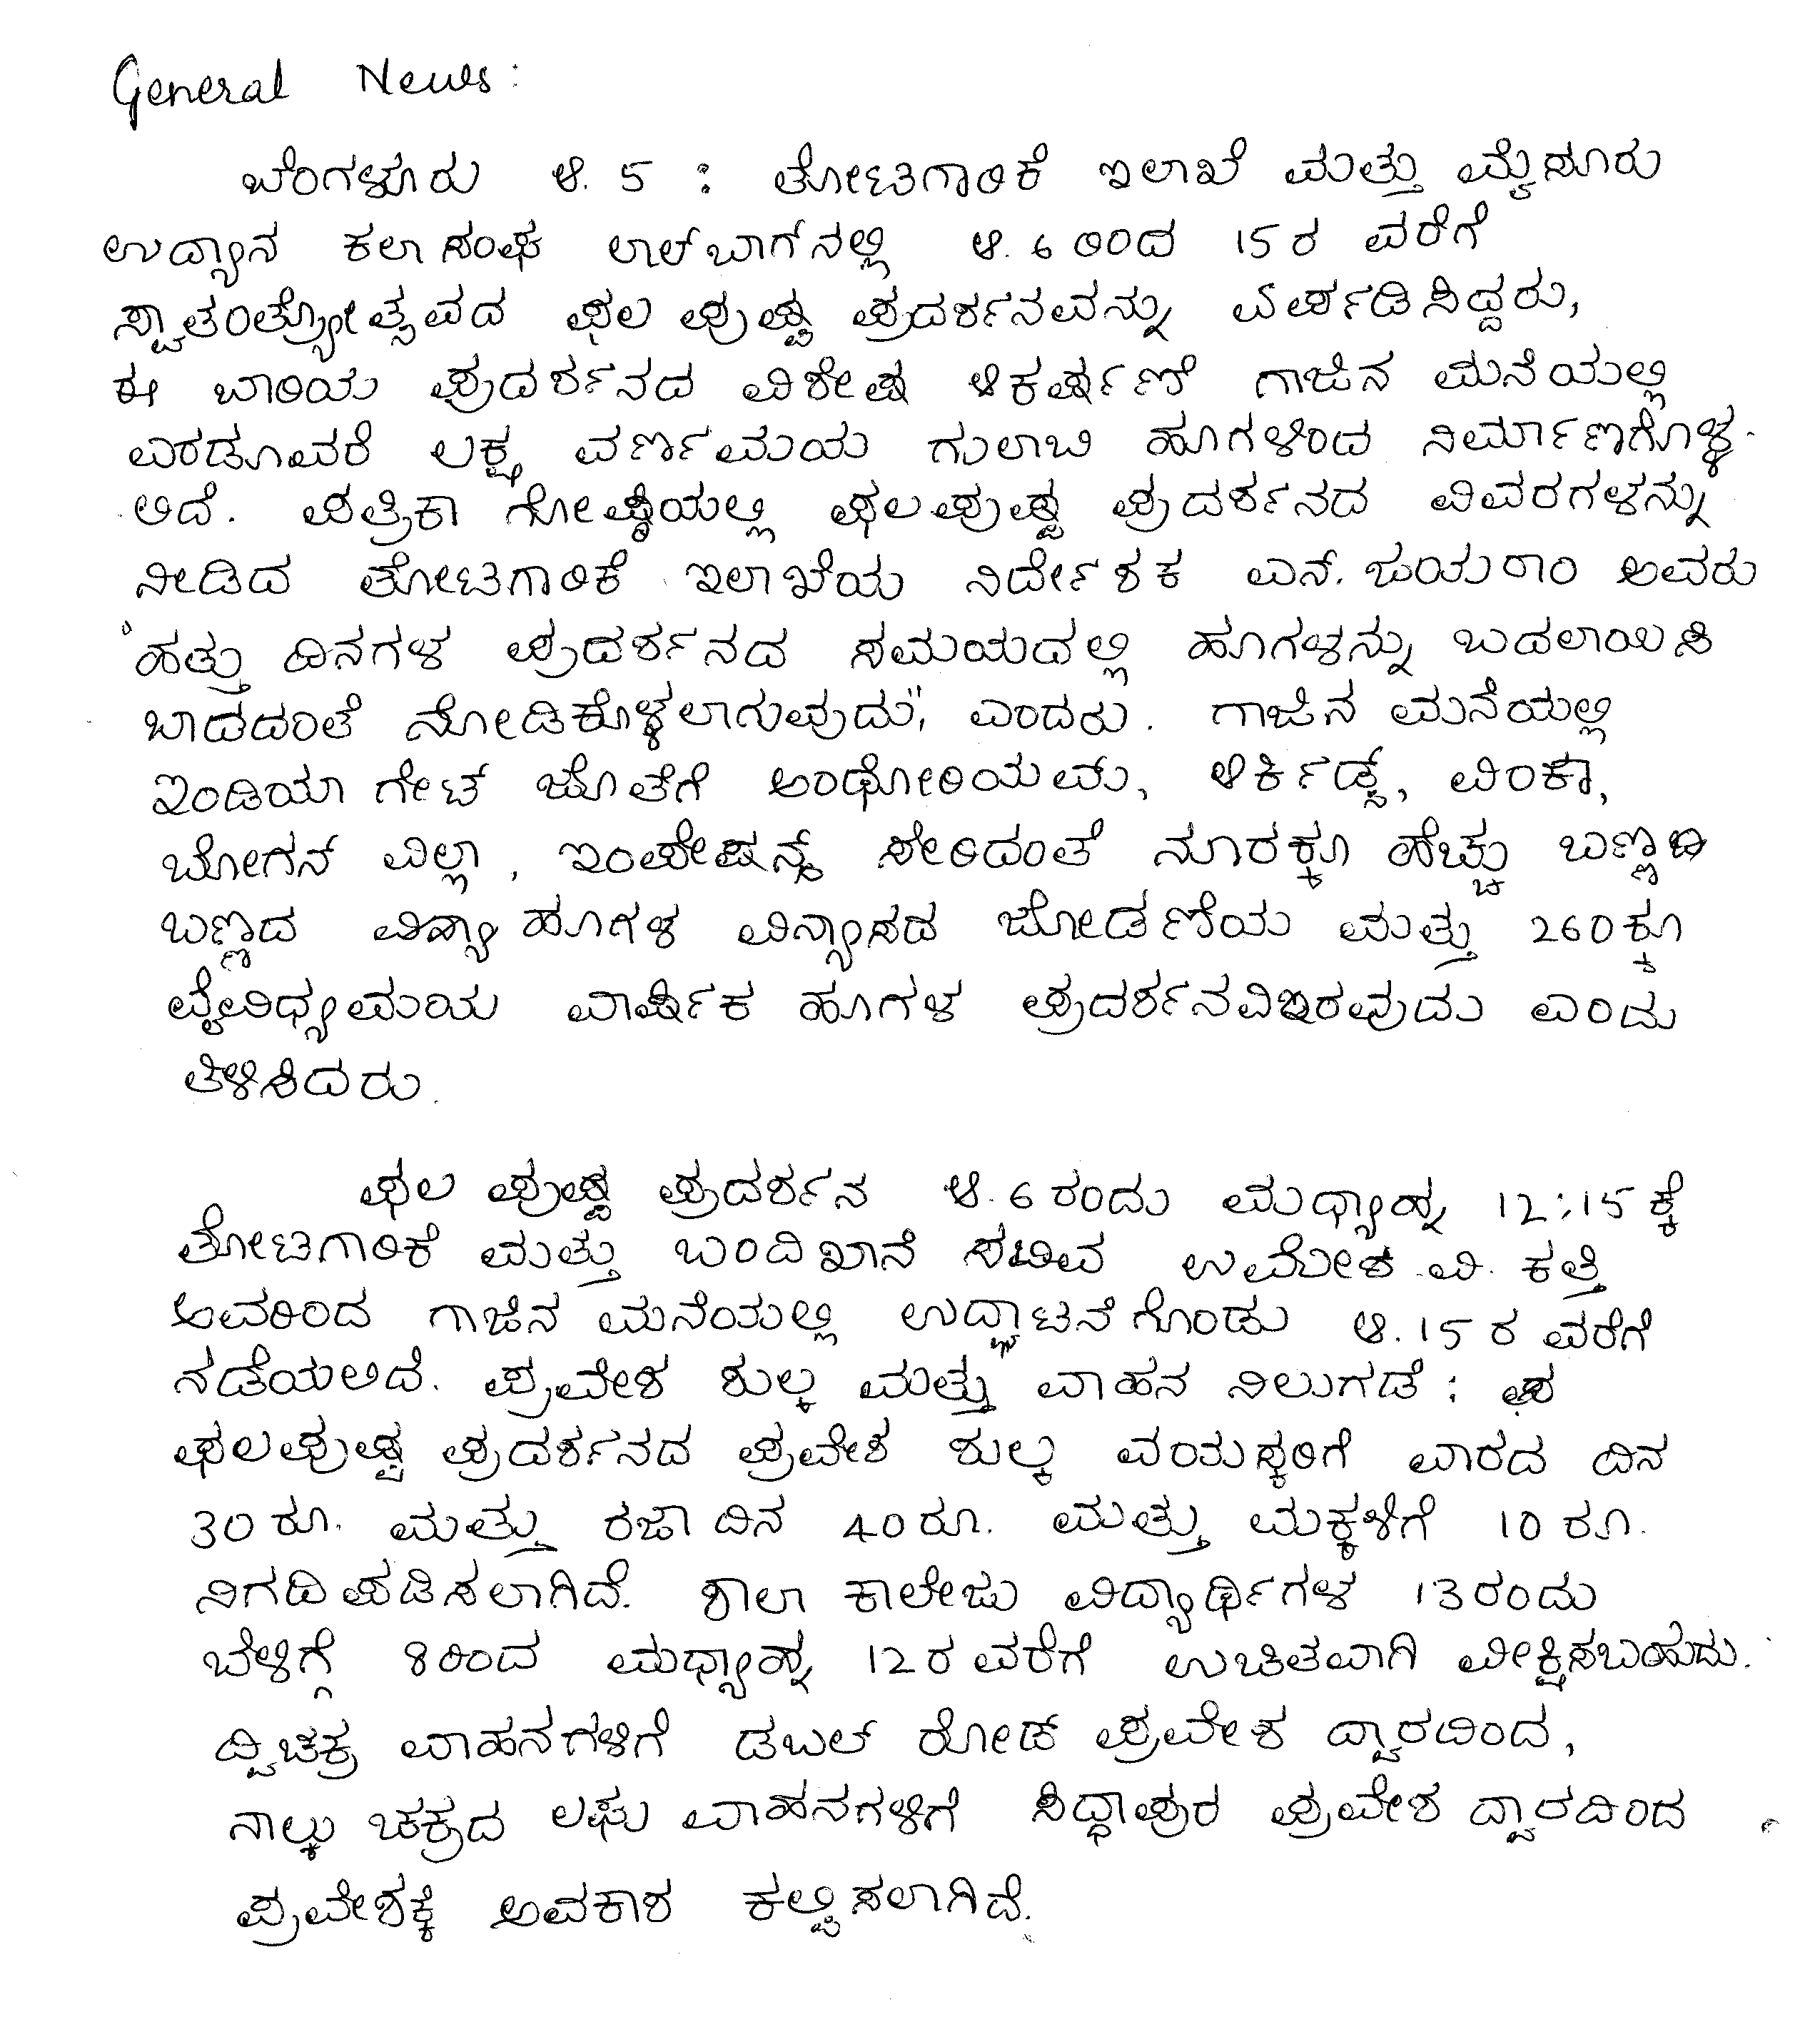 General News:
ಬೆಂಗಳೂರು ಆ. 5 : ತೋಟಗಾರಿಕೆ ಇಲಾಖೆ ಮತ್ತು ಮೈಸೂರು
ಉದ್ಯಾನ ಕಲಾ ಸಂಘ ಲಾಲ್‌ಬಾಗ್‌ನಲ್ಲಿ ಆ. 6 ರಿಂದ 15 ರ ವರೆಗೆ
ಸ್ವಾತಂತ್ರ್ಯೋತ್ಸವದ ಫಲ ಪುಷ್ಪ ಪ್ರದರ್ಶನವನ್ನು ಏರ್ಪಡಿಸಿದ್ದರು,
ಈ ಬಾರಿಯ ಪ್ರದರ್ಶನದ ವಿಶೇಷ ಆಕರ್ಷಣೆ ಗಾಜಿನ ಮನೆಯಲ್ಲಿ
ಎರಡೂವರೆ ಲಕ್ಷ ವರ್ಣಮಯ ಗುಲಾಬಿ ಹೂಗಳಿಂದ ನಿರ್ಮಾಣಗೊಳ್ಳ-
ಲಿದೆ. ಪತ್ರಿಕಾ ಗೋಷ್ಠಿಯಲ್ಲಿ ಫಲಪುಷ್ಪ ಪ್ರದರ್ಶನದ ವಿವರಗಳನ್ನು
ನೀಡಿದ ತೋಟಗಾರಿಕೆ ಇಲಾಖೆಯ ನಿರ್ದೇಶಕ ಎನ್. ಜಯರಾಂ ಅವರು
"ಹತ್ತು ದಿನಗಳ ಪ್ರದರ್ಶನದ ಸಮಯದಲ್ಲಿ ಹೂಗಳನ್ನು ಬದಲಾಯಿಸಿ
ಬಾಡದಂತೆ ನೋಡಿಕೊಳ್ಳಲಾಗುವುದು", ಎಂದರು. ಗಾಜಿನ ಮನೆಯಲ್ಲಿ
ಇಂಡಿಯಾ ಗೇಟ್ ಜೊತೆಗೆ ಅಂಥೋರಿಯಮ್, ಆರ್ಕಿಡ್ಸ್, ವಿಂಕಾ,
ಬೋಗನ್ ವಿಲ್ಲಾ, ಇಂಪೇಷನ್ಸ್ ಸೇರಿದಂತೆ ನೂರಕ್ಕೂ ಹೆಚ್ಚು ಬಣ್ಣದ
ಬಣ್ಣದ ಹೂಗಳ ವಿನ್ಯಾಸದ ಜೋಡಣೆಯ ಮತ್ತು 260ಕ್ಕೂ
ವೈವಿಧ್ಯಮಯ ವಾರ್ಷಿಕ ಹೂಗಳ ಪ್ರದರ್ಶನವಿಇರವುದು ಎಂದು
ತಿಳಿಸಿದರು.
ಫಲ ಪುಷ್ಪ ಪ್ರದರ್ಶನ ಆ. 6 ರಂದು ಮಧ್ಯಾಹ್ನ 12:15 ಕ್ಕೆ
ತೋಟಗಾರಿಕೆ ಮತ್ತು ಬಂದಿಖಾನೆ ಸಚಿವ ಉಮೇಶ ವಿ. ಕತ್ತಿ
ಅವರಿಂದ ಗಾಜಿನ ಮನೆಯಲ್ಲಿ ಉದ್ಘಾಟನೆಗೊಂಡು ಆ. 15 ರ ವರೆಗೆ
ನಡೆಯಲಿದೆ. ಪ್ರವೇಶ ಶುಲ್ಕ ಮತ್ತು ವಾಹನ ನಿಲುಗಡೆ :
ಫಲಪುಷ್ಪ ಪ್ರದರ್ಶನದ ಪ್ರವೇಶ ಶುಲ್ಕ ವಯಸ್ಕರಿಗೆ ವಾರದ ದಿನ
30 ರೂ. ಮತ್ತು ರಜಾ ದಿನ 40 ರೂ. ಮತ್ತು ಮಕ್ಕಳಿಗೆ 10 ರೂ.
ನಿಗದಿಪಡಿಸಲಾಗಿದೆ. ಶಾಲಾ ಕಾಲೇಜು ವಿದ್ಯಾರ್ಥಿಗಳ 13ರಂದು
ಬೆಳಿಗ್ಗೆ 8ರಿಂದ ಮಧ್ಯಾಹ್ನ 12ರ ವರೆಗೆ ಉಚಿತವಾಗಿ ವೀಕ್ಷಿಸಬಹುದು.
ದ್ವಿಚಕ್ರ ವಾಹನಗಳಿಗೆ ಡಬಲ್ ರೋಡ್ ಪ್ರವೇಶ ದ್ವಾರದಿಂದ,
ನಾಲ್ಕು ಚಕ್ರದ ಲಘು ವಾಹನಗಳಿಗೆ ಸಿದ್ಧಾಪುರ ಪ್ರವೇಶ ದ್ವಾರದಿಂದ
ಪ್ರವೇಶಕ್ಕೆ ಅವಕಾಶ ಕಲ್ಪಿಸಲಾಗಿದೆ.